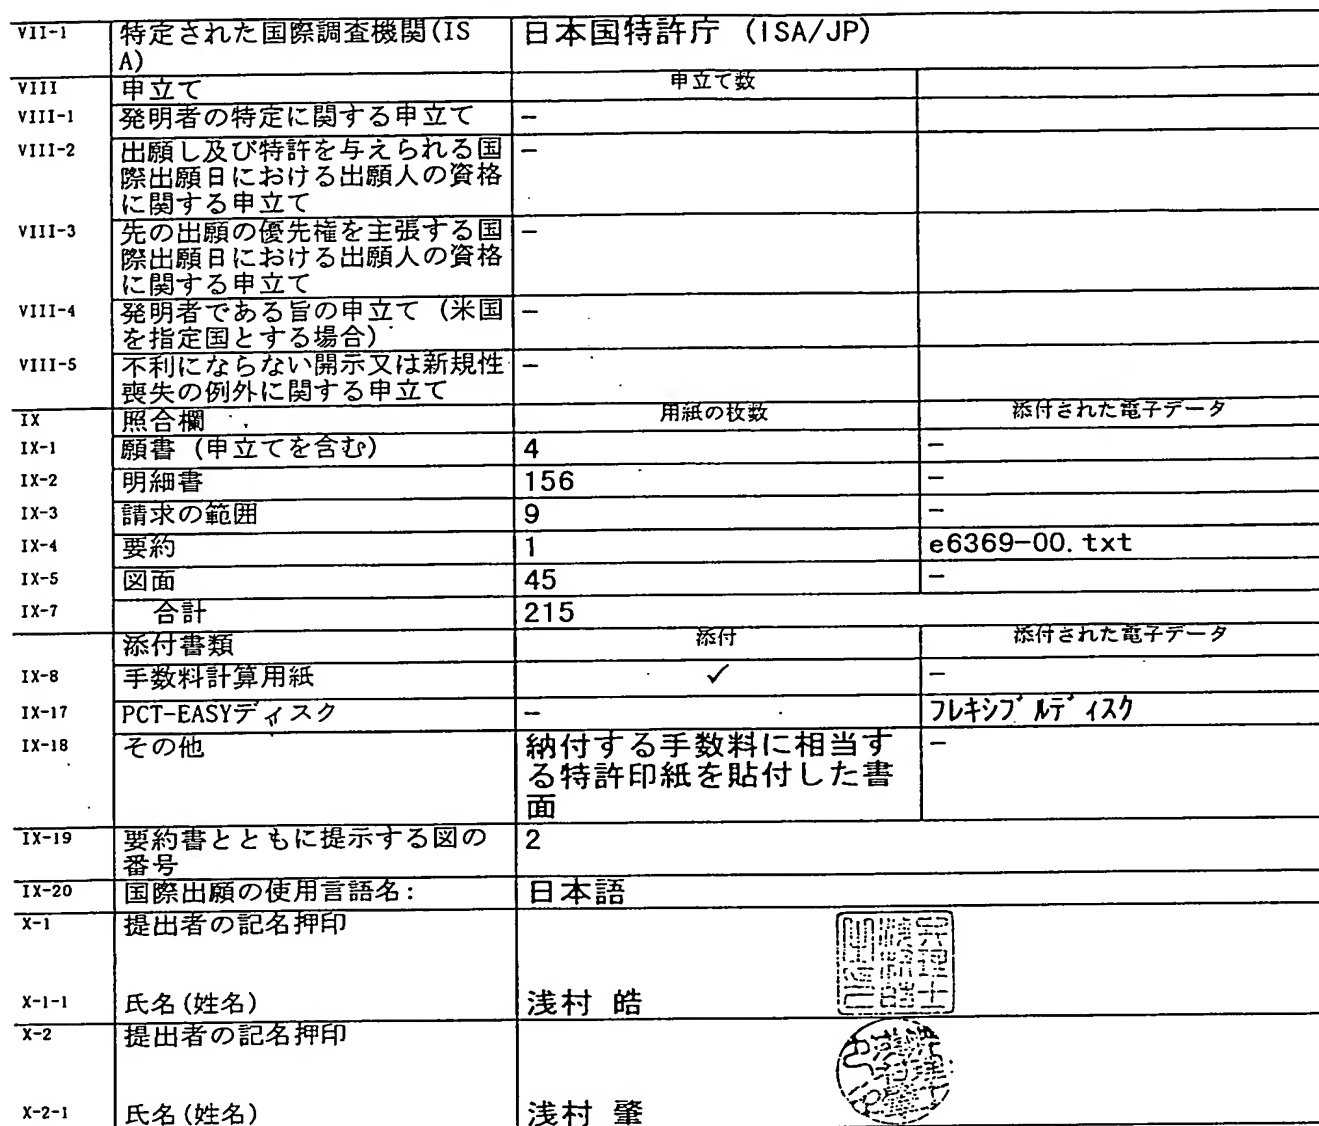 VII-1 特定された国際調査機関(IS 日本国特許庁 (ISA/JP)
A)
VIII 申立て 申立て数
VIII-1 発明者の特定に関する申立て -
VIII-2 出願し及び特許を与えられる国 -
際出願日における出願人の資格
に関する申立て
VIII-3 先の出願の優先権を主張する国 -
際出願日における出願人の資格
に関する申立て
VIII-4 発明者である旨の申立て (米国 -
を指定国とする場合)
VIII-5 不利にならない開示又は新規性 -
喪失の例外に関する申立て
IX 照合欄 用紙の枚数 添付された電子データ
IX-1 願書 (申立てを含む) 4 -
IX-2 明細書 156 -
IX-3 請求の範囲 9 -
IX-4 要約 1 e6369-00.txt
IX-5 図面 45 -
IX-7 合計 215
添付書類 添付 添付された電子データ
IX-8 手数料計算用紙 ✓ -
IX-17 PCT-EASYディスク - フレキシブルディスク
IX-18 その他 納付する手数料に相当す -
る特許印紙を貼付した書
面
IX-19 要約書とともに提示する図の 2
番号
IX-20 国際出願の使用言語名: 日本語
X-1 提出者の記名押印
X-1-1 氏名(姓名) 浅村 皓
X-2 提出者の記名押印
X-2-1 氏名(姓名) 浅村 肇